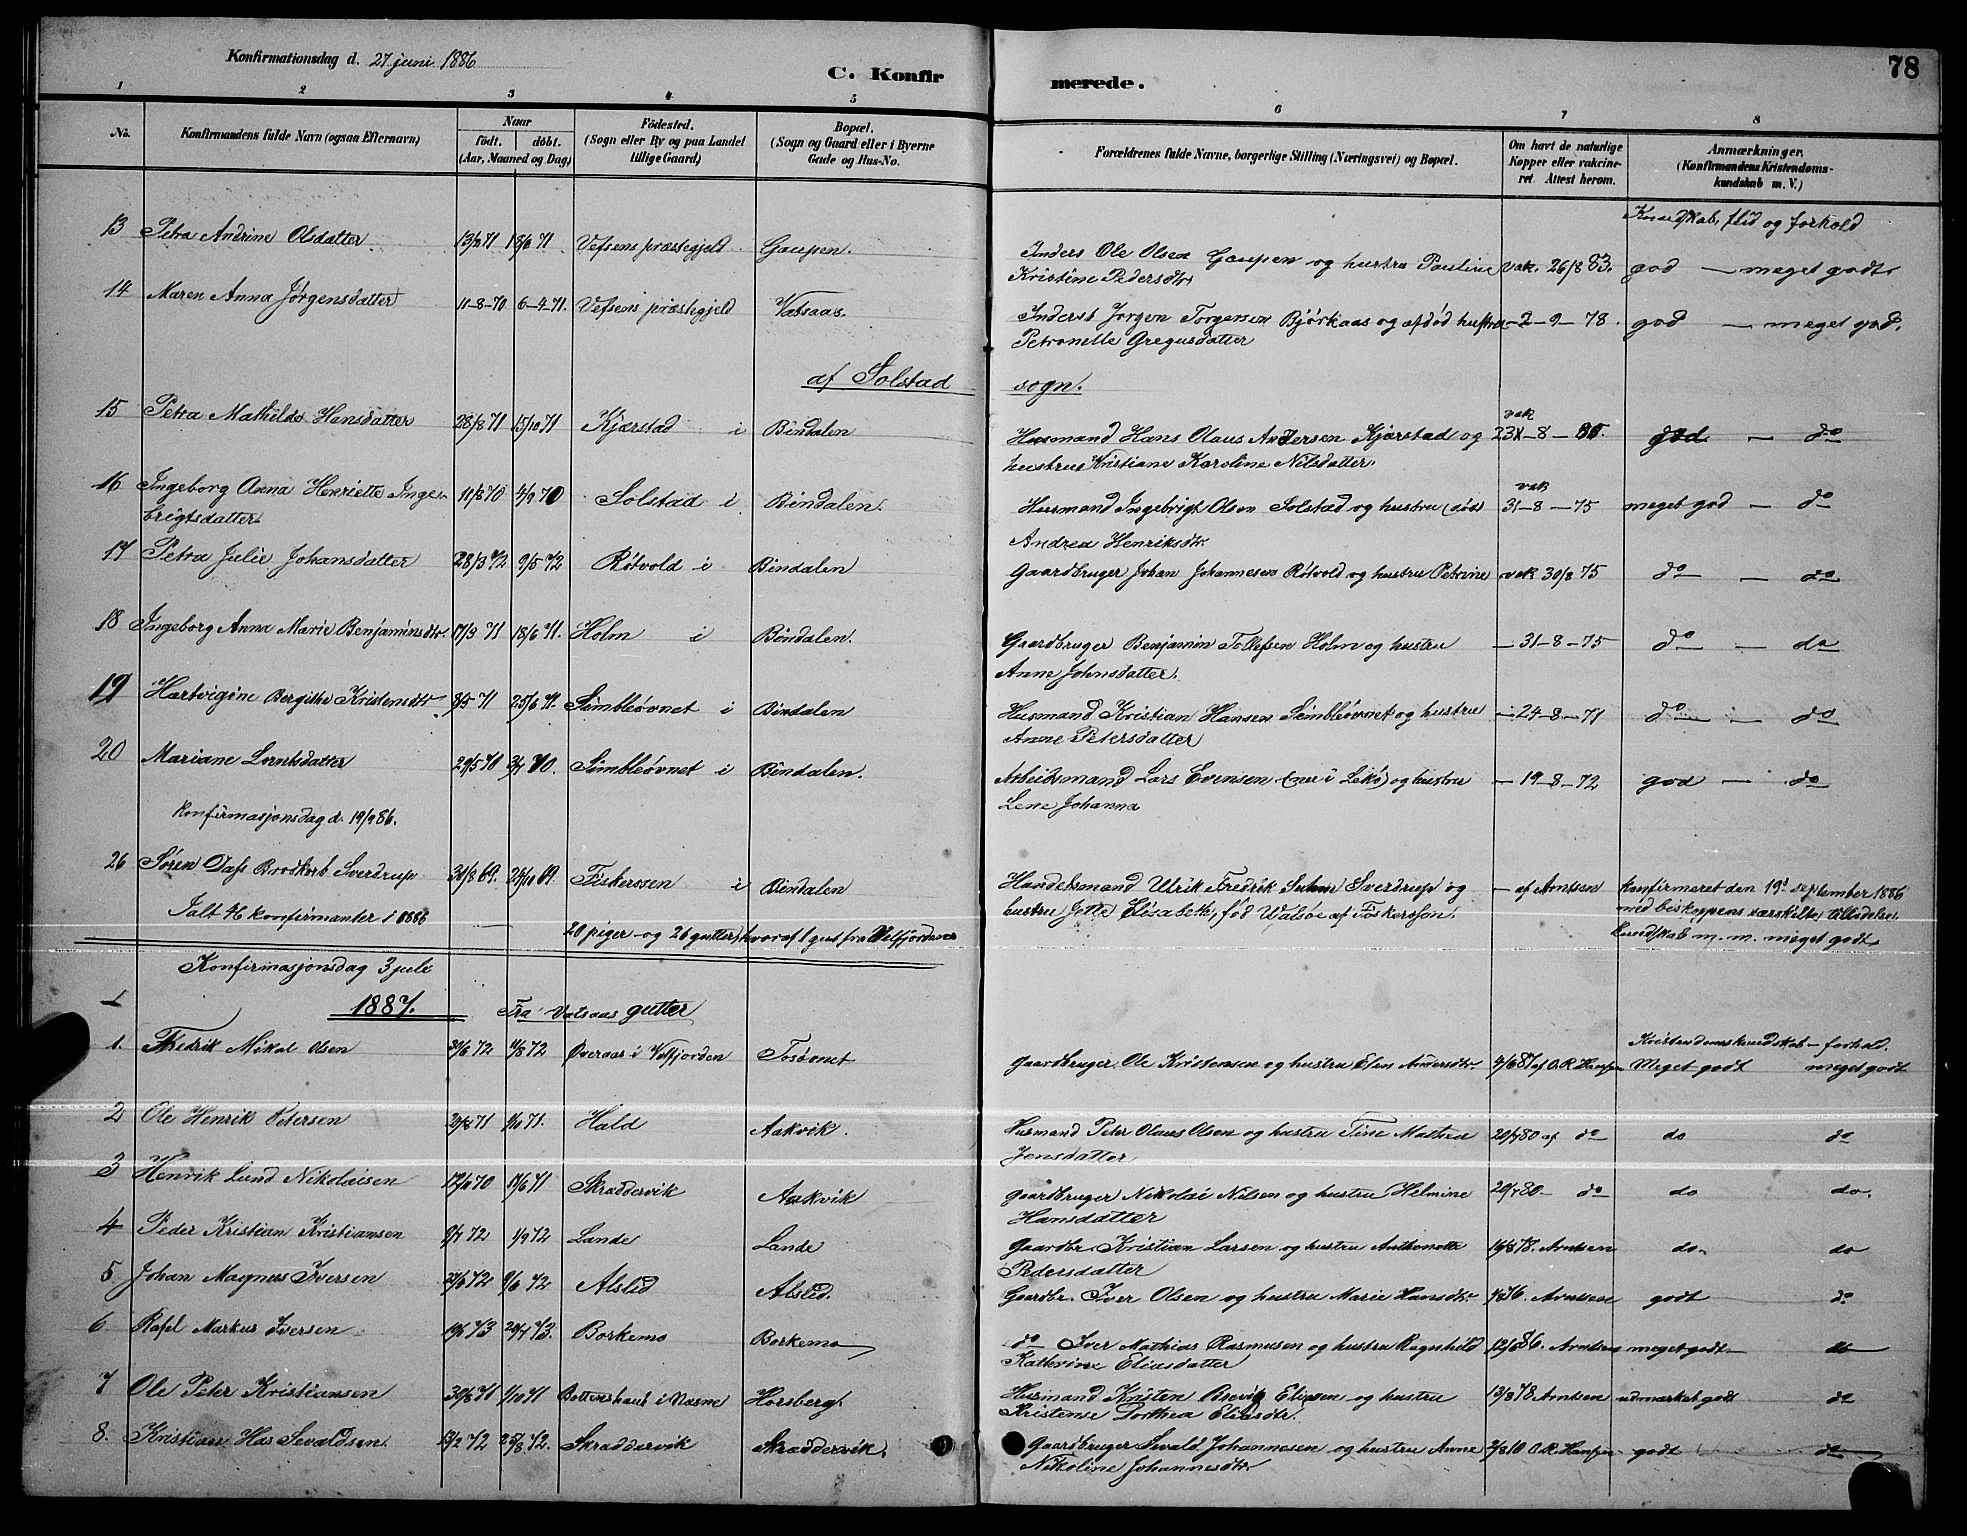 Konfirmationsdag d. 27 juni 1886
C. Konfirmerede.
78
1 2 3 4 5 6 7 8
No. Konfirmandens fulde Navn (ogsaa Efternavn) Naar født. døbt. (Aar, Maaned og Dag) Fødested. (Sogn eller By og paa Landet tillige Gaard) Bopæl. (Sogn og Gaard eller i Byerne Gade og Hus-No. Forældrenes fulde Navne, borgerlige Stilling (Næringsvei) og Bopæl. Om havt de naturlige Kopper eller vakcineret. Attest herom. Anmærkninger. (Konfirmandens Kristendomskundskab m. V.)
Kundskab, flid og forhold
13 Petra Andrine Olsdatter. 18/6 71 Vefsens præstegjeld Gaupen. Inders Ole Olsen Gaupen og hustru Pauline vak. 26/8 83. god — meget godt
Kristine Pedersdtr
14 Maren Anna Jørgensdatter 11-8-70 6-4-71. Vefsens præstegjeld Vatsaas. Inderst Jørgen Torgersen Bjørkaas og afdød hustru -2-9-78. god — meget god.
Petronelle Gregusdatter
af Solstad sogn.
15 Petra Mathilde Hansdatter 28/8 71 15/10 71 Kjærstad i Bindalen Husmand Hans Olaus Andersen Kjærstad og vak god — do
hustru Kristiane Karoline Nilsdatter.
16 Ingeborg Anna Henriette Inge- 11/8 70 4/9 70 Solstad i Bindalen. Husmand Ingebrigt Olsen Solstad og hustru (død) vak 31-8-75 meget god — do
brigtsdatter Andrea Henriksdtr.
17 Petra Julie Johansdatter 28/3 72 9/5 72 Røtvold i Bindalen Gaardbruger Johan Johannesen Røtvold og hustru Petrine vak 30/8 75 do — do
18 Ingeborg Anna Marie Benjaminsdtr. 17/3 71 18/6 71. Holm i Bindalen. Gaardbruger Benjamin Tollefsen Holm og hustru — 31-8-75 do — do
Anne Johnsdatter.
19 Hartvigine Bergithe Kristensdtr. 3/5 71 25/6 71. Simbleøvnet i Bindalen Husmand Kristian Hansen Simbleøvnet og hustru — 24-8-71 do — do
Anne Petersdatter
20 Mariane Lorntsdatter 29/5 70 Simbleøvnet i Bindalen. Arbeidsmand Lars Evensen (nu i Lekø) og hustru — 19-8-72 god — do
Lene Johanna
Konfirmasjonsdag d. 19/9 86.
26 Søren Dass Brodkorb Sverdrup 30/8 69. 24/10 69. Fiskerosen i Bindalen Handelsmand Ulrik Fredrik Suhm Sverdrup og — af Arntsen Konfirmeret den 19d september 1886
hustru Jette Elisabeth, fød Walsøe af Fiskerosen. med biskoppens særskilte tilladelse.
Ialt 46 konfirmanter i 1886 — 20 piger og 26 gutter, hvoraf 1 gut fra Velfjorden Kundskab m. m. meget godt
Konfirmasjonsdag 3 juli
1887. Fra Vatsaas gutter
Kristendomskundskab — forhold.
1. Fredrik Nikal Olsen 30/6 72 11/8 72 Øveraas i Velfjorden Tosøvnet Gaardbruger Ole Kristensen og hustru Elen Andersdtr. 4/6 87 af O.R. Hansen Meget godt meget godt
2 Ole Henrik Petersen Hald Aakvik. Husmand Peter Olaus Olsen og hustru Tine Mathea 20/7 80 af do do do
Jensdatter
3 Henrik Lund Nikolaisen 12/11 70 11/6 71 Skraddervik Aakvik Gaardbruger Nikolai Nilsen og hustru Helmine 20/7 80 — do do do.
Hansdatter
4 Peder Kristian Kristiansen 9/7 72 1/9 72 Lande Lande Gaardbr. Kristian Larsen og hustru Anthonette 16/8 78. Arntsen do. do
Pedersdatter
5 Johan Magnus Iversen 9/6 72 Alslid Alslid. Gaardbr. Iver Olsen og hustru Marie Hansdtr. Arntsen godt do
6 Rafel Markus Iversen 20/4 73. Borkemo Borkemo do Iver Mathias Rasmusen og hustru Ragnhild Arntsen meget godt — do
Kathrine Eliasdatter
7 Ole Peter Kristiansen 30/8 71 1/10 71 i Næsne Horsberg Husmand Kristen Brevig Eliasen og hustru 13/8 78 Arntsen udmærket godt do
Kristense Dorthea Eliasdtr.
8. Kristian Has Sevaldsen. 13/2 72 25/8 72. Skraddervik Skraddervik. Gaardbruger Sevald Johannesen og hustru Anne O.R. Hansen godt do
Nikoline Johannesdtr.